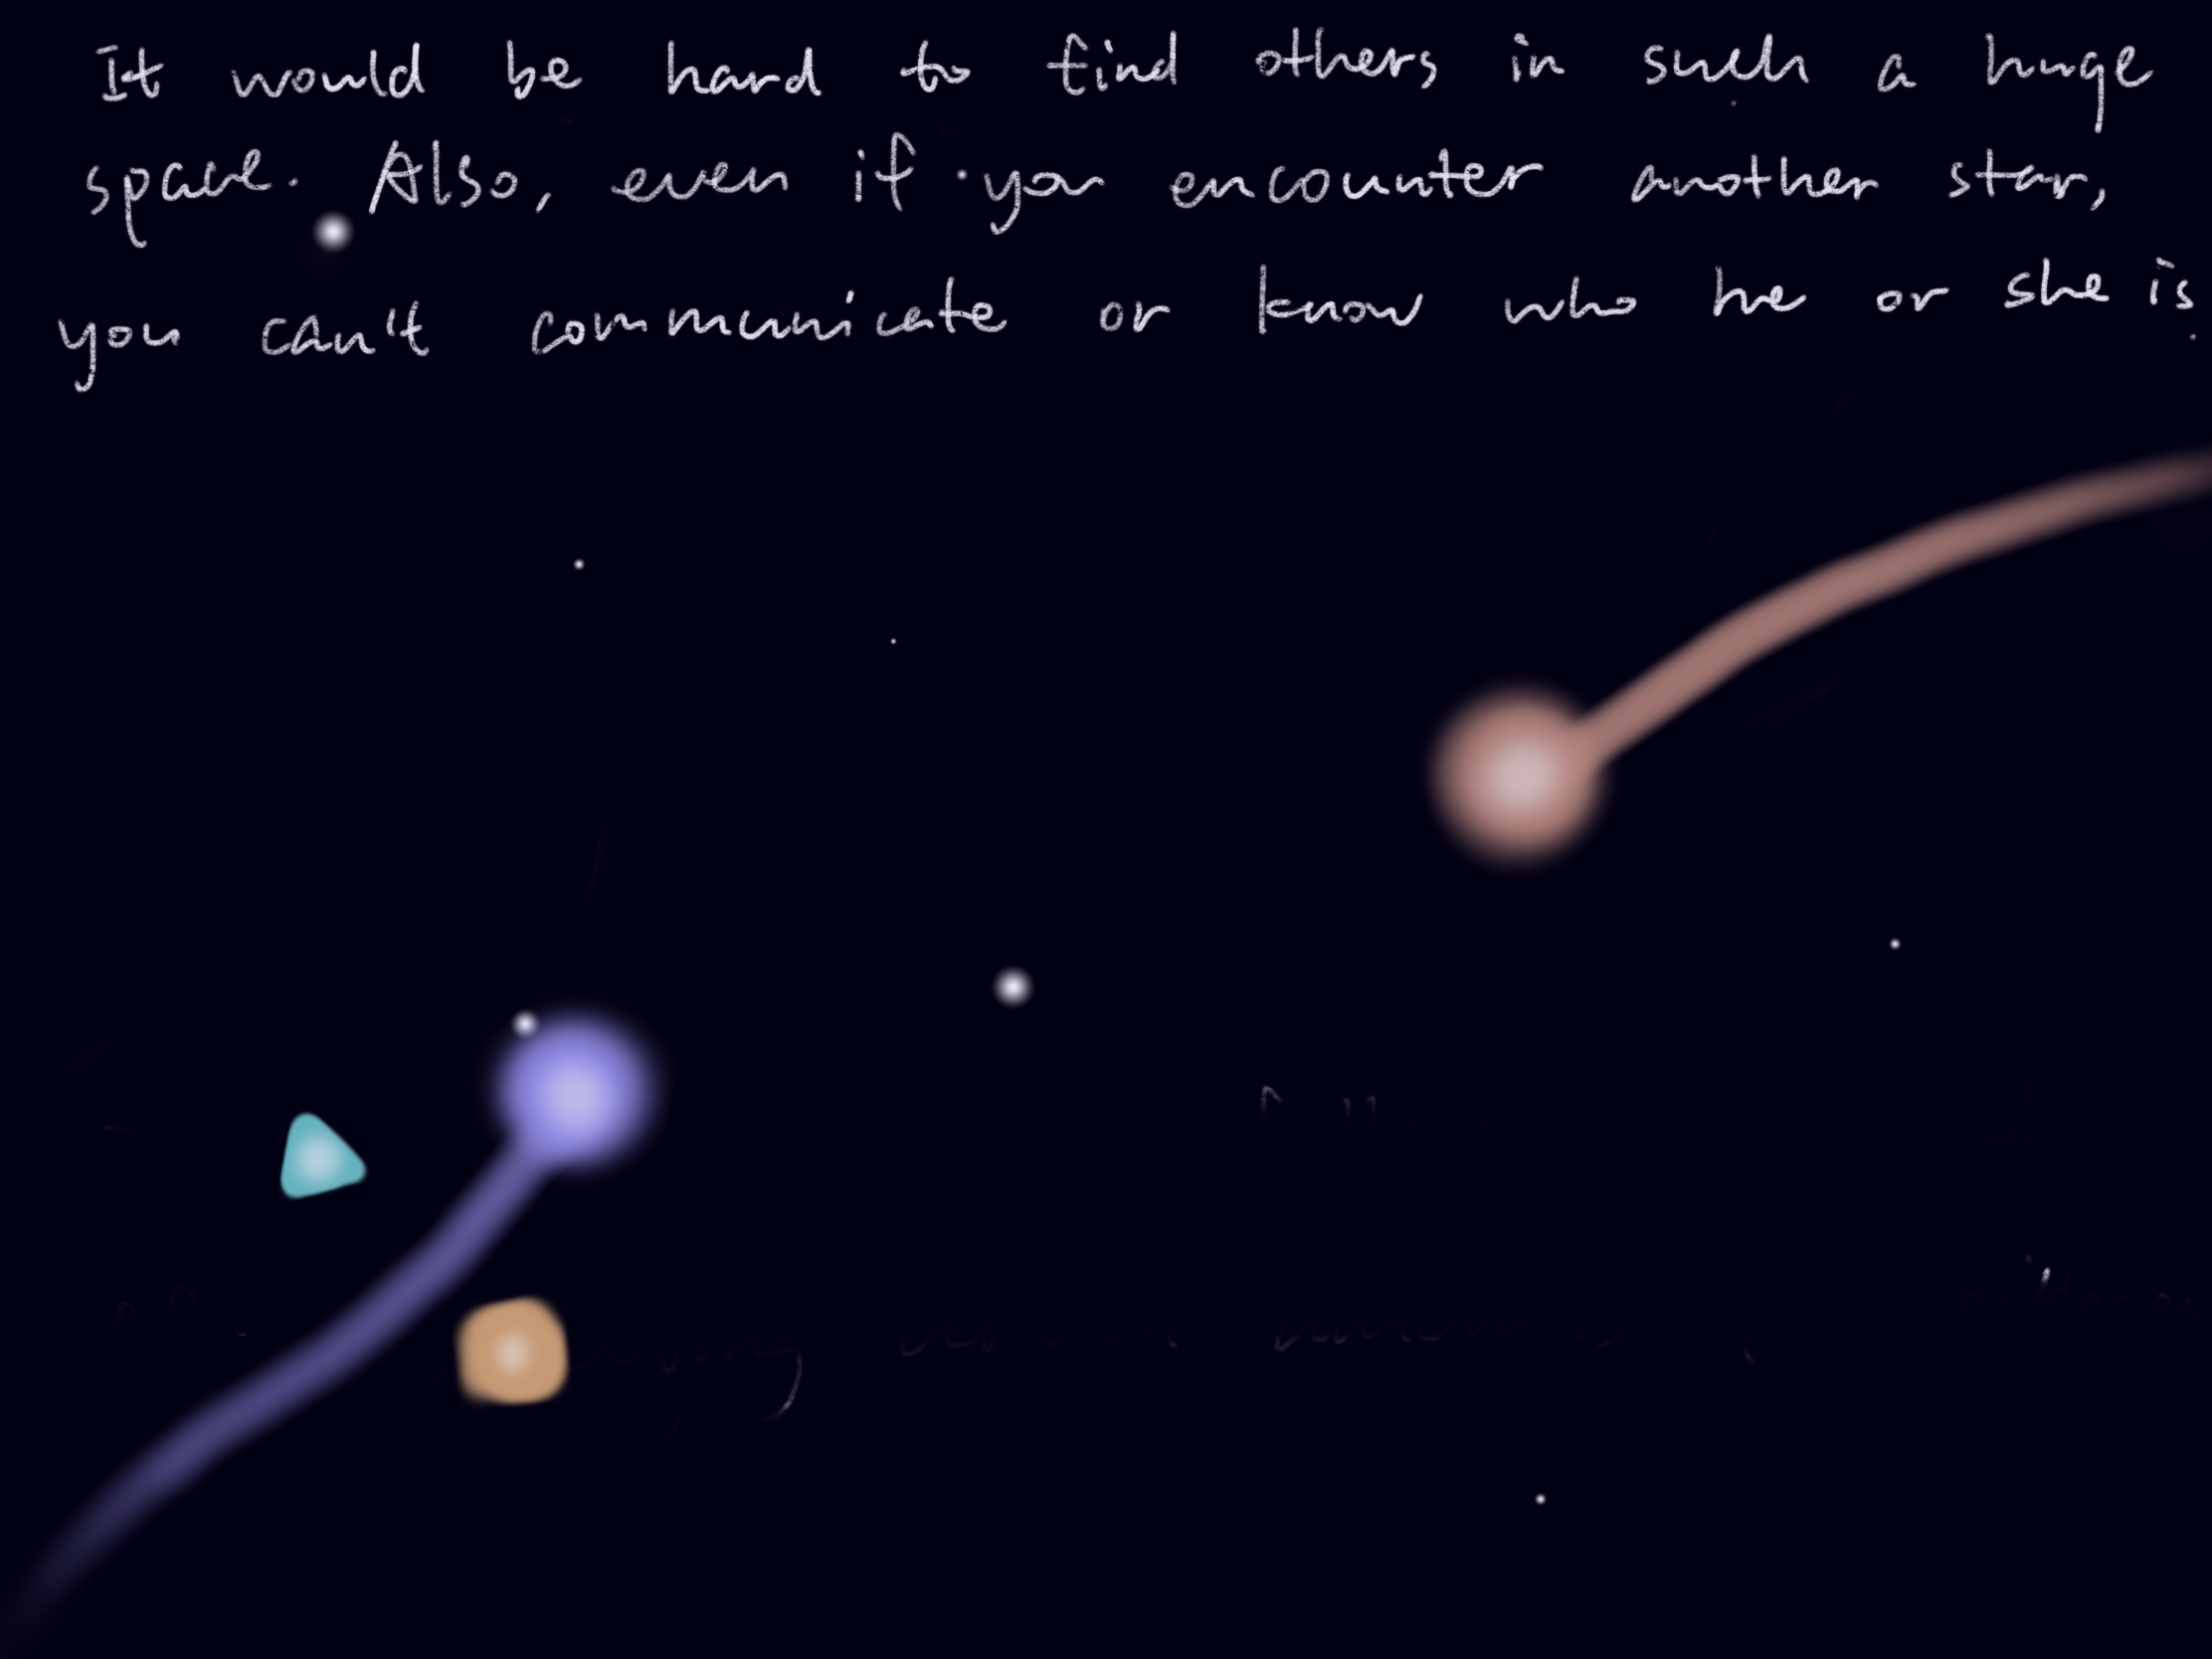 It would be hard to find others in such a huge
space. Also, even if you encounter another star,
you can't communicate or know who he or she is.